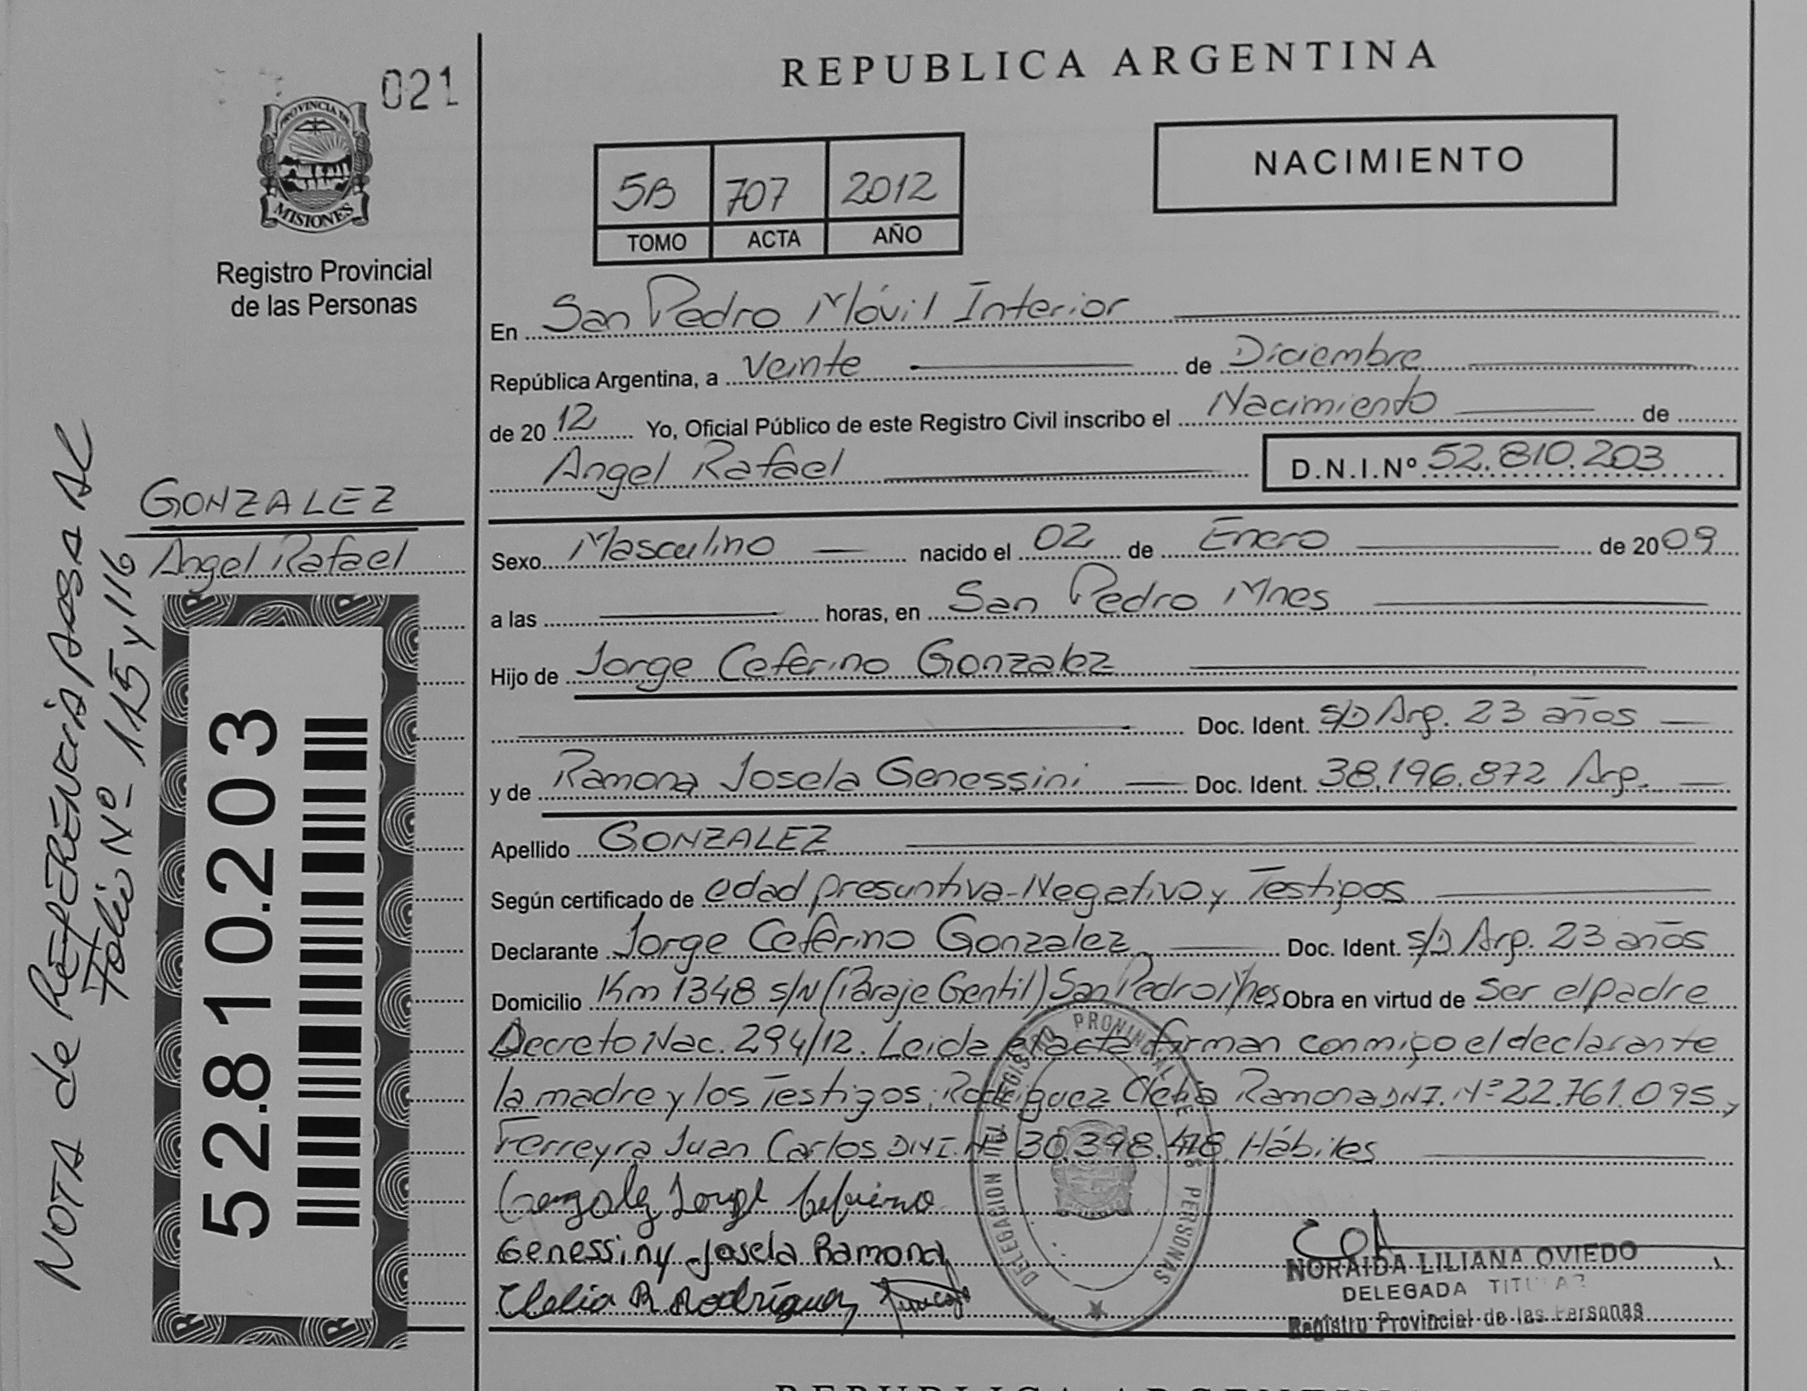 021
PROVINCIA DE
MISIONES
Registro Provincial
de las Personas
NOTA de REFERENCIA PASA AL
Folio Nº 115 y 116
GONZALEZ
Angel Rafael
52.810.203
REPUBLICA ARGENTINA
5B 707 2012
TOMO ACTA AÑO
NACIMIENTO
En San Pedro Móvil Interior
República Argentina, a veinte de Diciembre
de 2012 Yo, Oficial Público de este Registro Civil inscribo el Nacimiento de
Angel Rafael D.N.I.Nº 52.810.203
Sexo Masculino nacido el 02 de Enero de 2009
a las horas, en San Pedro Mnes
Hijo de Jorge Ceferino Gonzalez
Doc. Ident. S/D Arg. 23 años
y de Ramona Josela Genessini Doc. Ident. 38.196.872 Arg.
Apellido GONZALEZ
Según certificado de edad presuntiva-Negativo y Testigos
Declarante Jorge Ceferino Gonzalez Doc. Ident. S/D Arg. 23 años
Domicilio Km 1348 S/N (Paraje Gentil) San Pedro Mnes Obra en virtud de ser el padre
Decreto Nac. 294/12. Leida el acta firman conmigo el declarante
la madre y los Testigos: Rodriguez Clelia Ramona DNI. Nº 22.761.095 y
Ferreyra Juan Carlos DNI. Nº 30.398.478 Hábiles
Gonzalez Jorge Ceferino
Genessiny Josela Ramona
Clelia R Rodríguez
DELEGACION DEL REGISTRO PROVINCIAL DE LAS PERSONAS
NORAIDA LILIANA OVIEDO
DELEGADA TITULAR
Registro Provincial de las Personas
REPUBLICA ARGENTINA